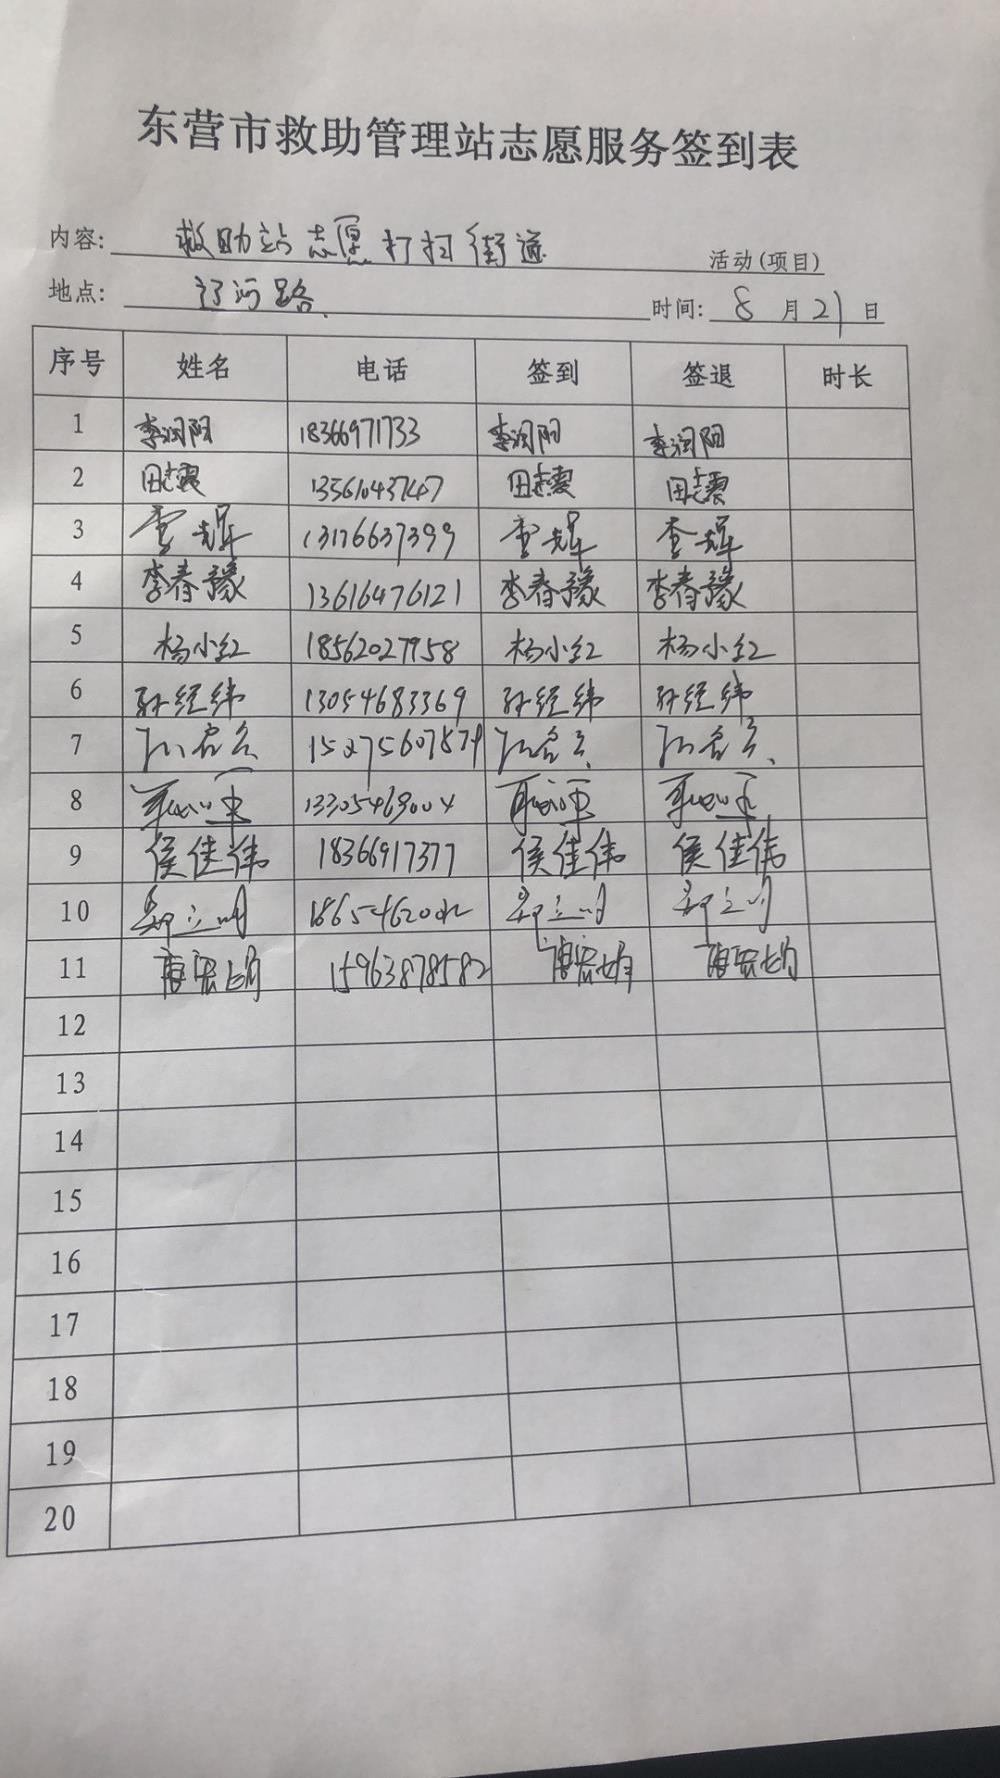 东营市救助管理站志愿服务签到表
内容: 救助站志愿打扫街道 活动(项目)
地点: 辽河路 时间: 8月21日
序号 姓名 电话 签到 签退 时长
1 李润阳 18366971733 李润阳 李润阳
2 田志震 13561043747 田志震 田志震
3 13176637399
4 李春豫 13616476121 李春豫 李春豫
5 杨小红 18562027958 杨小红 杨小红
6 孙经纬 13054683369 孙经纬 孙经纬
7 15275607879
8 13305469004
9 侯佳伟 18366917377 侯佳伟 侯佳伟
10
11 15963878582
12
13
14
15
16
17
18
19
20